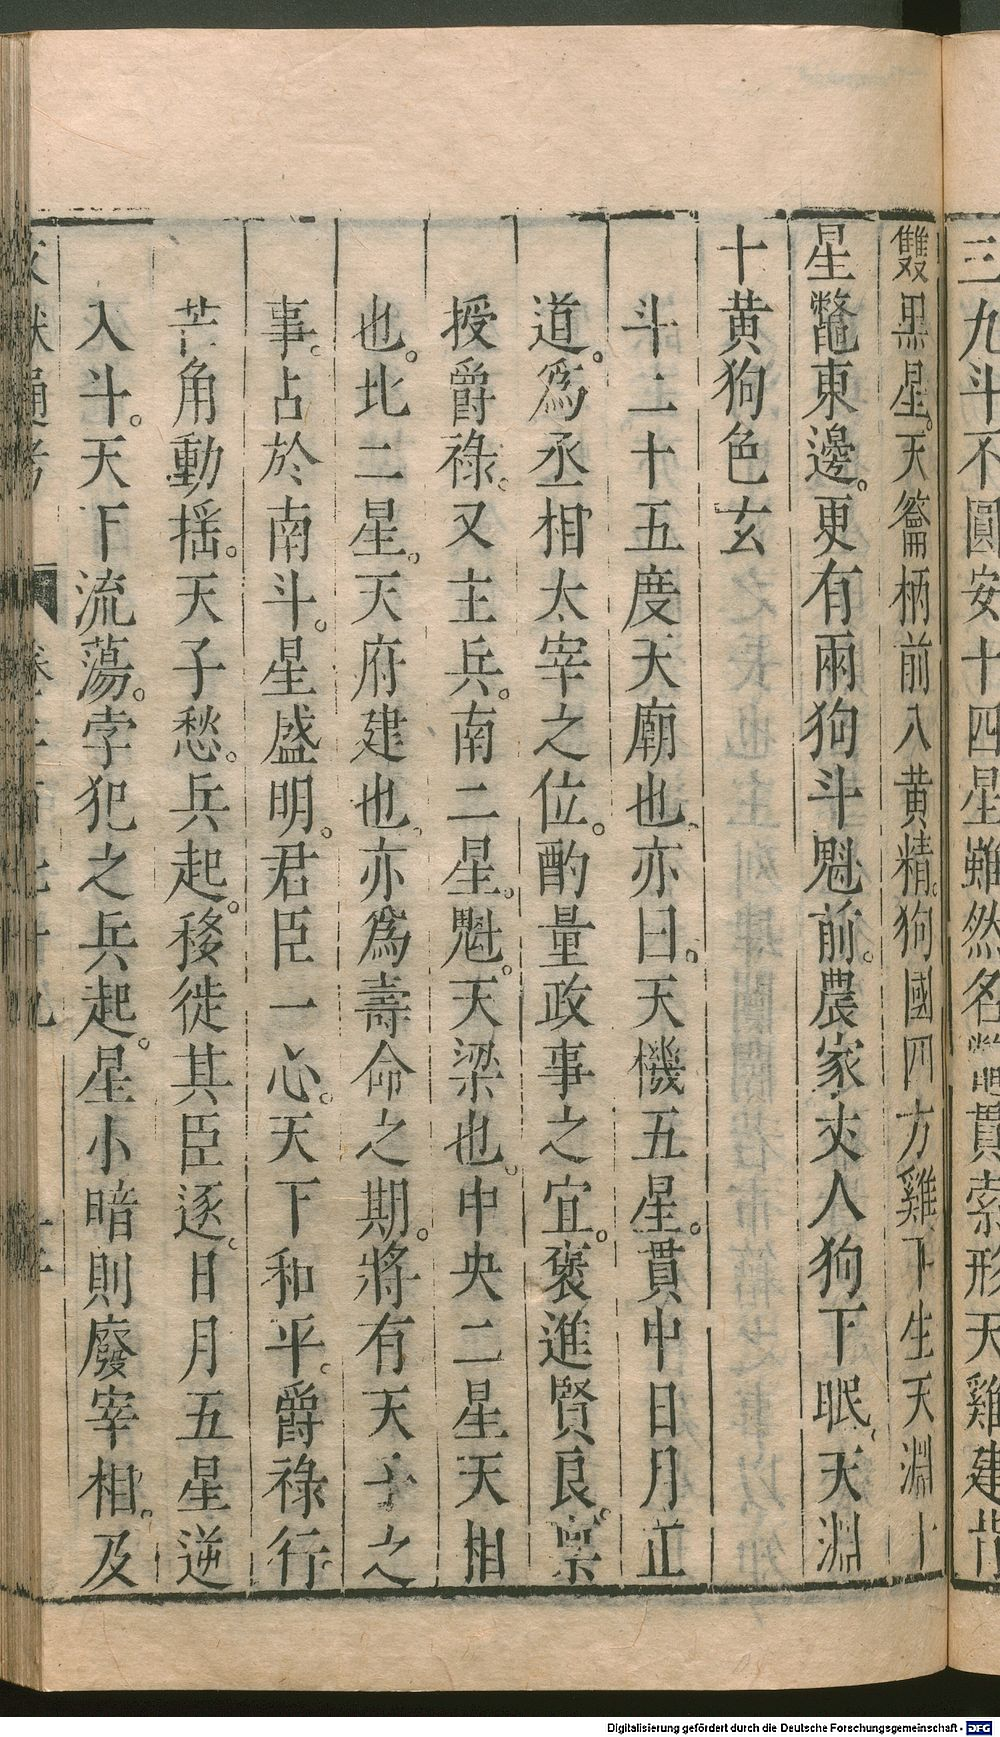 三九斗不圓安十四星雖然名鱉貫索形天雞建背
雙黑星。天籥柄前八黃精。狗國四方雞下生天淵十
星鼈東邊。更有兩狗斗魁前。農家丈人狗下眠、天淵
十黃狗色玄
斗二十五度天廟也、亦曰。天機五星。貫中日月正
道。爲丞相太宰之位。酌量政事之宜。褒進賢良。稟
授爵祿。又主兵。南二星。魁。天梁也。中央二星天相
也。北二星。天府建也、亦爲壽命之期。將有天子之
事。占於南斗。星盛明。君臣一心。天下和平。爵祿行
芒角動搖。天子愁。兵起。移徙其臣逐。日月五星逆
入斗。天下流蕩。孛犯之兵起。星小暗則廢宰相。及
文獻通考 卷二百七十九
Digitalisierung gefördert durch die Deutsche Forschungsgemeinschaft - DFG